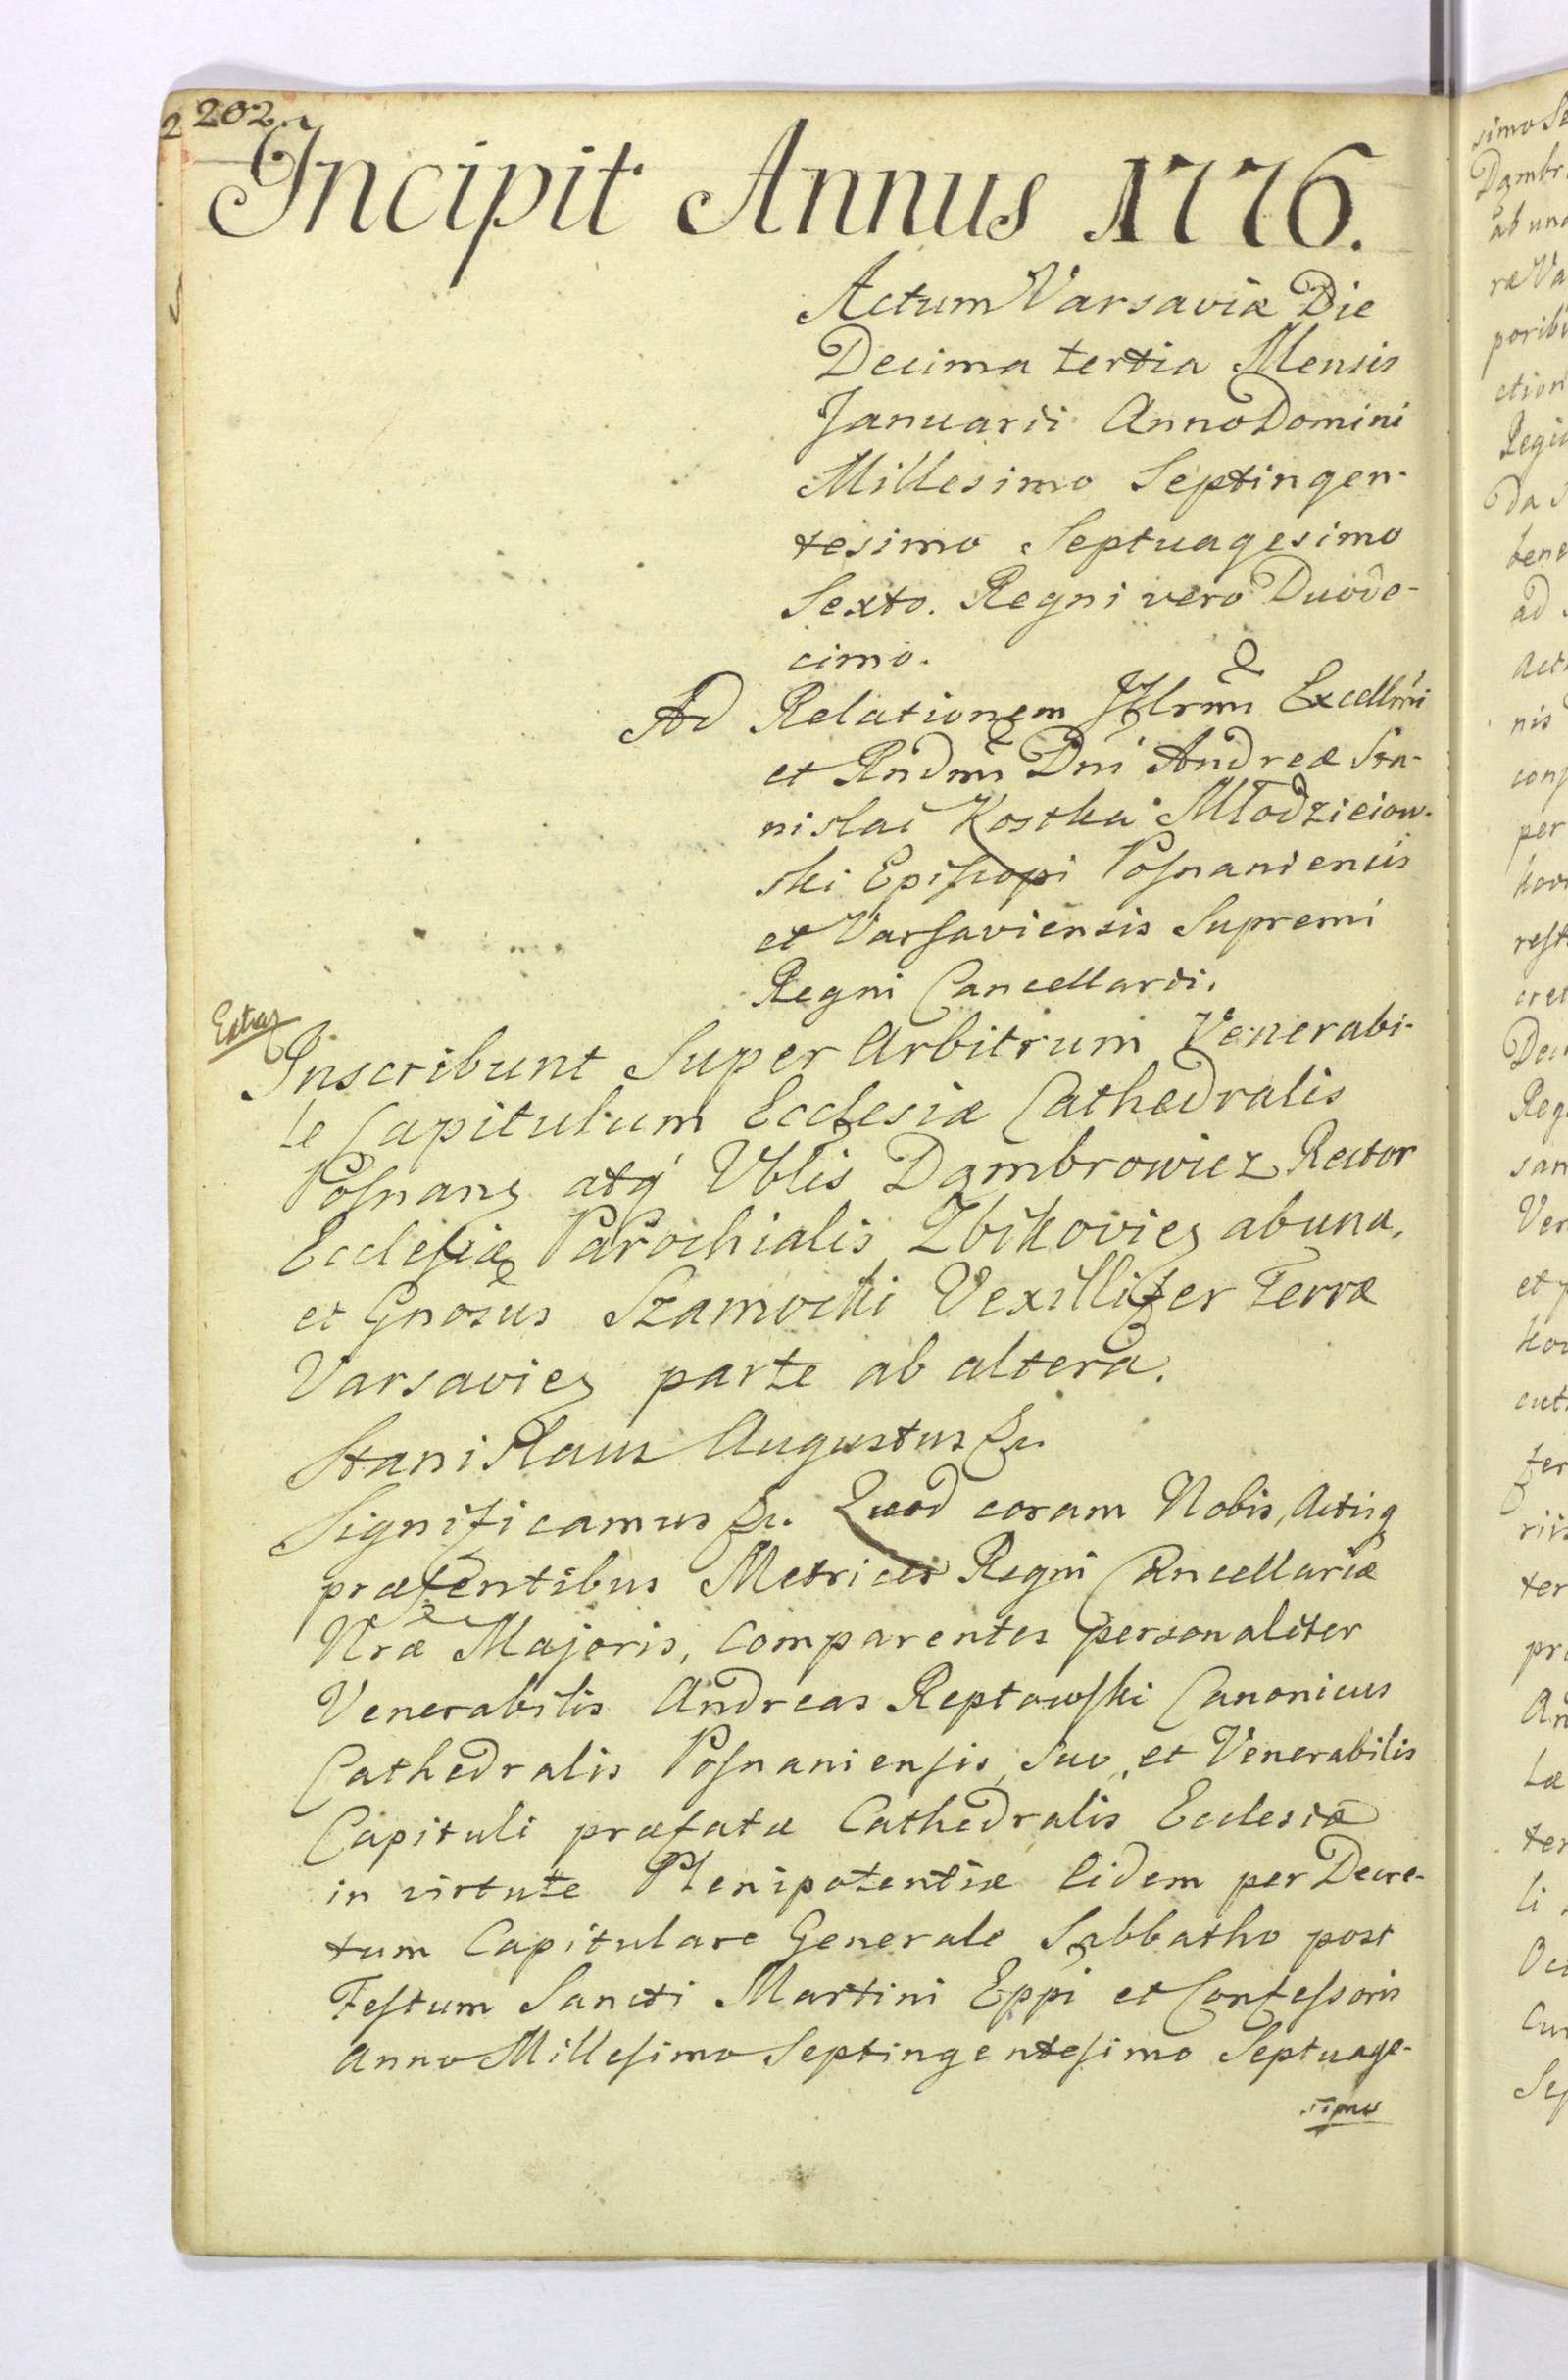 202.
Incipit Annus 1776.
Actum Varsaviæ Die
Decima tertia Mensis
Januarii Anno Domini
Millesimo Septingen-
tesimo Septuagesimo
Sexto. Regni vero Duode-
cimo.
Ad Relationem Illrmi Excellmi
et Rndmi Dni Andreæ Sta-
nislai Kostka Młodzieiow-
ski Episcopi Posnaniensis
et Varsaviensis Supremi
Regni Cancellarii.
Inscribunt Super Arbitrum Venerabi-
le Capitulum Ecclesiæ Cathedralis
Posnanş atq Vblis Dąmbrowicz Rector
Ecclesiæ Parochialis Zbikovieş ab una,
et Gnosus Szamocki Vexillifer Terræ
Varsavieş parte ab altera.
Stanislaus Augustus &c.
Significamus &c. Quod coram Nobis, Actisq
præsentibus Metrices Regni Cancellariæ
Nræ Majoris, comparentes personaliter
Venerabilis Andreas Reptowski Canonicus
Cathedralis Posnaniensis, suo, et Venerabilis
Capituli præfatæ Cathedralis Ecclesiæ
in virtute Plenipotentiæ Eidem per Decre-
tum Capitulare Generale Sabbatho post
Festum Sancti Martini Eppi et Confessoris
Anno Millesimo Septingentesimo Septuage-
simo